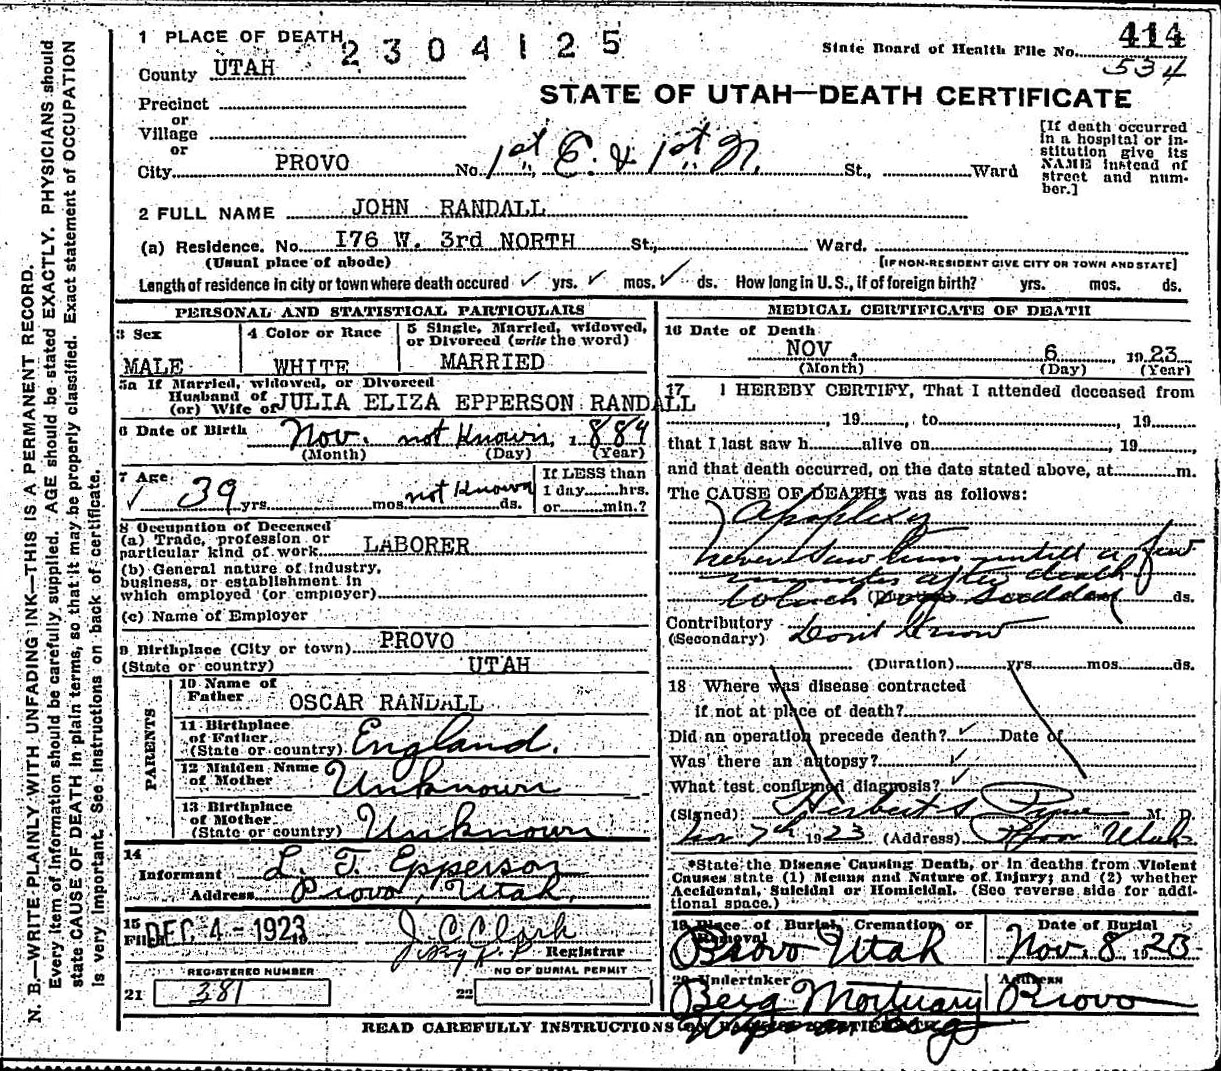 N. B.—WRITE PLAINLY WITH UNFADING INK—THIS IS A PERMANENT RECORD.
Every item of information should be carefully supplied. AGE should be stated EXACTLY. PHYSICIANS should
state CAUSE OF DEATH in plain terms, so that it may be properly classified. Exact statement of OCCUPATION
is very important. See instructions on back of certificate.
1 PLACE OF DEATH
2304125
State Board of Health File No. 414
534
County UTAH
STATE OF UTAH—DEATH CERTIFICATE
Precinct
or
Village
or
City PROVO No. 1st E. & 1st N. St., Ward
[If death occurred
in a hospital or in-
stitution give its
NAME instead of
street and num-
ber.]
2 FULL NAME JOHN RANDALL
(a) Residence. No. 176 W. 3rd NORTH St., Ward.
(Usual place of abode) [IF NON-RESIDENT GIVE CITY OR TOWN AND STATE]
Length of residence in city or town where death occured ✓ yrs. ✓ mos. ✓ ds. How long in U.S., if of foreign birth? yrs. mos. ds.
PERSONAL AND STATISTICAL PARTICULARS
3 Sex
MALE
4 Color or Race
WHITE
5 Single, Married, widowed,
or Divorced (write the word)
MARRIED
5a If Married, widowed, or Divorced
Husband of
(or) Wife of JULIA ELIZA EPPERSON RANDALL
6 Date of Birth Nov. not Known, 1884
(Month) (Day) (Year)
7 Age
✓ 39 yrs. mos. not Known ds.
If LESS than
1 day hrs.
or min.?
8 Occupation of Deceased
(a) Trade, profession or
particular kind of work LABORER
(b) General nature of industry,
business, or establishment in
which employed (or employer)
(c) Name of Employer
9 Birthplace (City or town) PROVO
(State or country) UTAH
PARENTS
10 Name of
Father OSCAR RANDALL
11 Birthplace
of Father
(State or country) England.
12 Maiden Name
of Mother Unknown
13 Birthplace
of Mother
(State or country) Unknown
14
Informant L. T. Epperson
Address Provo, Utah.
15
Filed DEC 4 - 1923 J. C. Clark
Registrar
REGISTERED NUMBER
21 381
NO OF BURIAL PERMIT
22
MEDICAL CERTIFICATE OF DEATH
16 Date of Death
NOV. 6 1923
(Month) (Day) (Year)
17 I HEREBY CERTIFY, That I attended deceased from
, 19 , to , 19
that I last saw h alive on , 19
and that death occurred, on the date stated above, at m.
The CAUSE OF DEATH* was as follows:
Apoplexy
never saw him untill a few
minutes after death
which was suddden ds.
Contributory
(Secondary) Dont Know
(Duration) yrs. mos. ds.
18 Where was disease contracted
if not at place of death?
Did an operation precede death? ✓ Date of
Was there an autopsy? ✓
What test confirmed diagnosis? ✓
(Signed) Herbert S Pyne M. D.
Nov 7th 1923 (Address) Provo Utah
*State the Disease Causing Death, or in deaths from Violent
Causes state (1) Means and Nature of Injury; and (2) whether
Accidental, Suicidal or Homicidal. (See reverse side for addi-
tional space.)
19 Place of Burial, Cremation, or
Removal
Provo Utah
Date of Burial
Nov. 8 1923
20 Undertaker
Berg Mortuary
Address
Provo
READ CAREFULLY INSTRUCTIONS ON